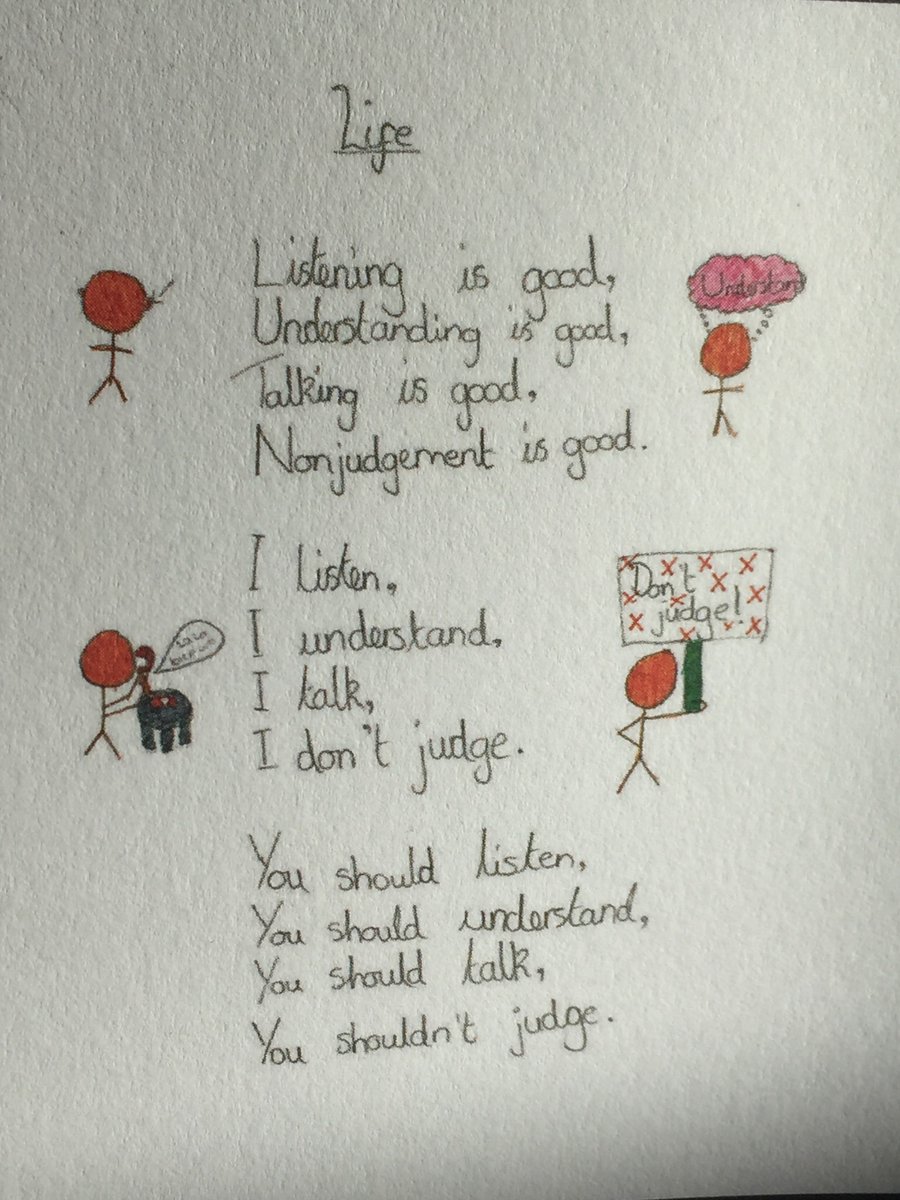 Life
Listening is good,
Understanding is good,
Talking is good,
Nonjudgement is good.
Understand
I listen,
I understand,
I talk,
I don't judge.
Don't
judge!
You should listen,
You should understand,
You should talk,
You shouldn't judge.